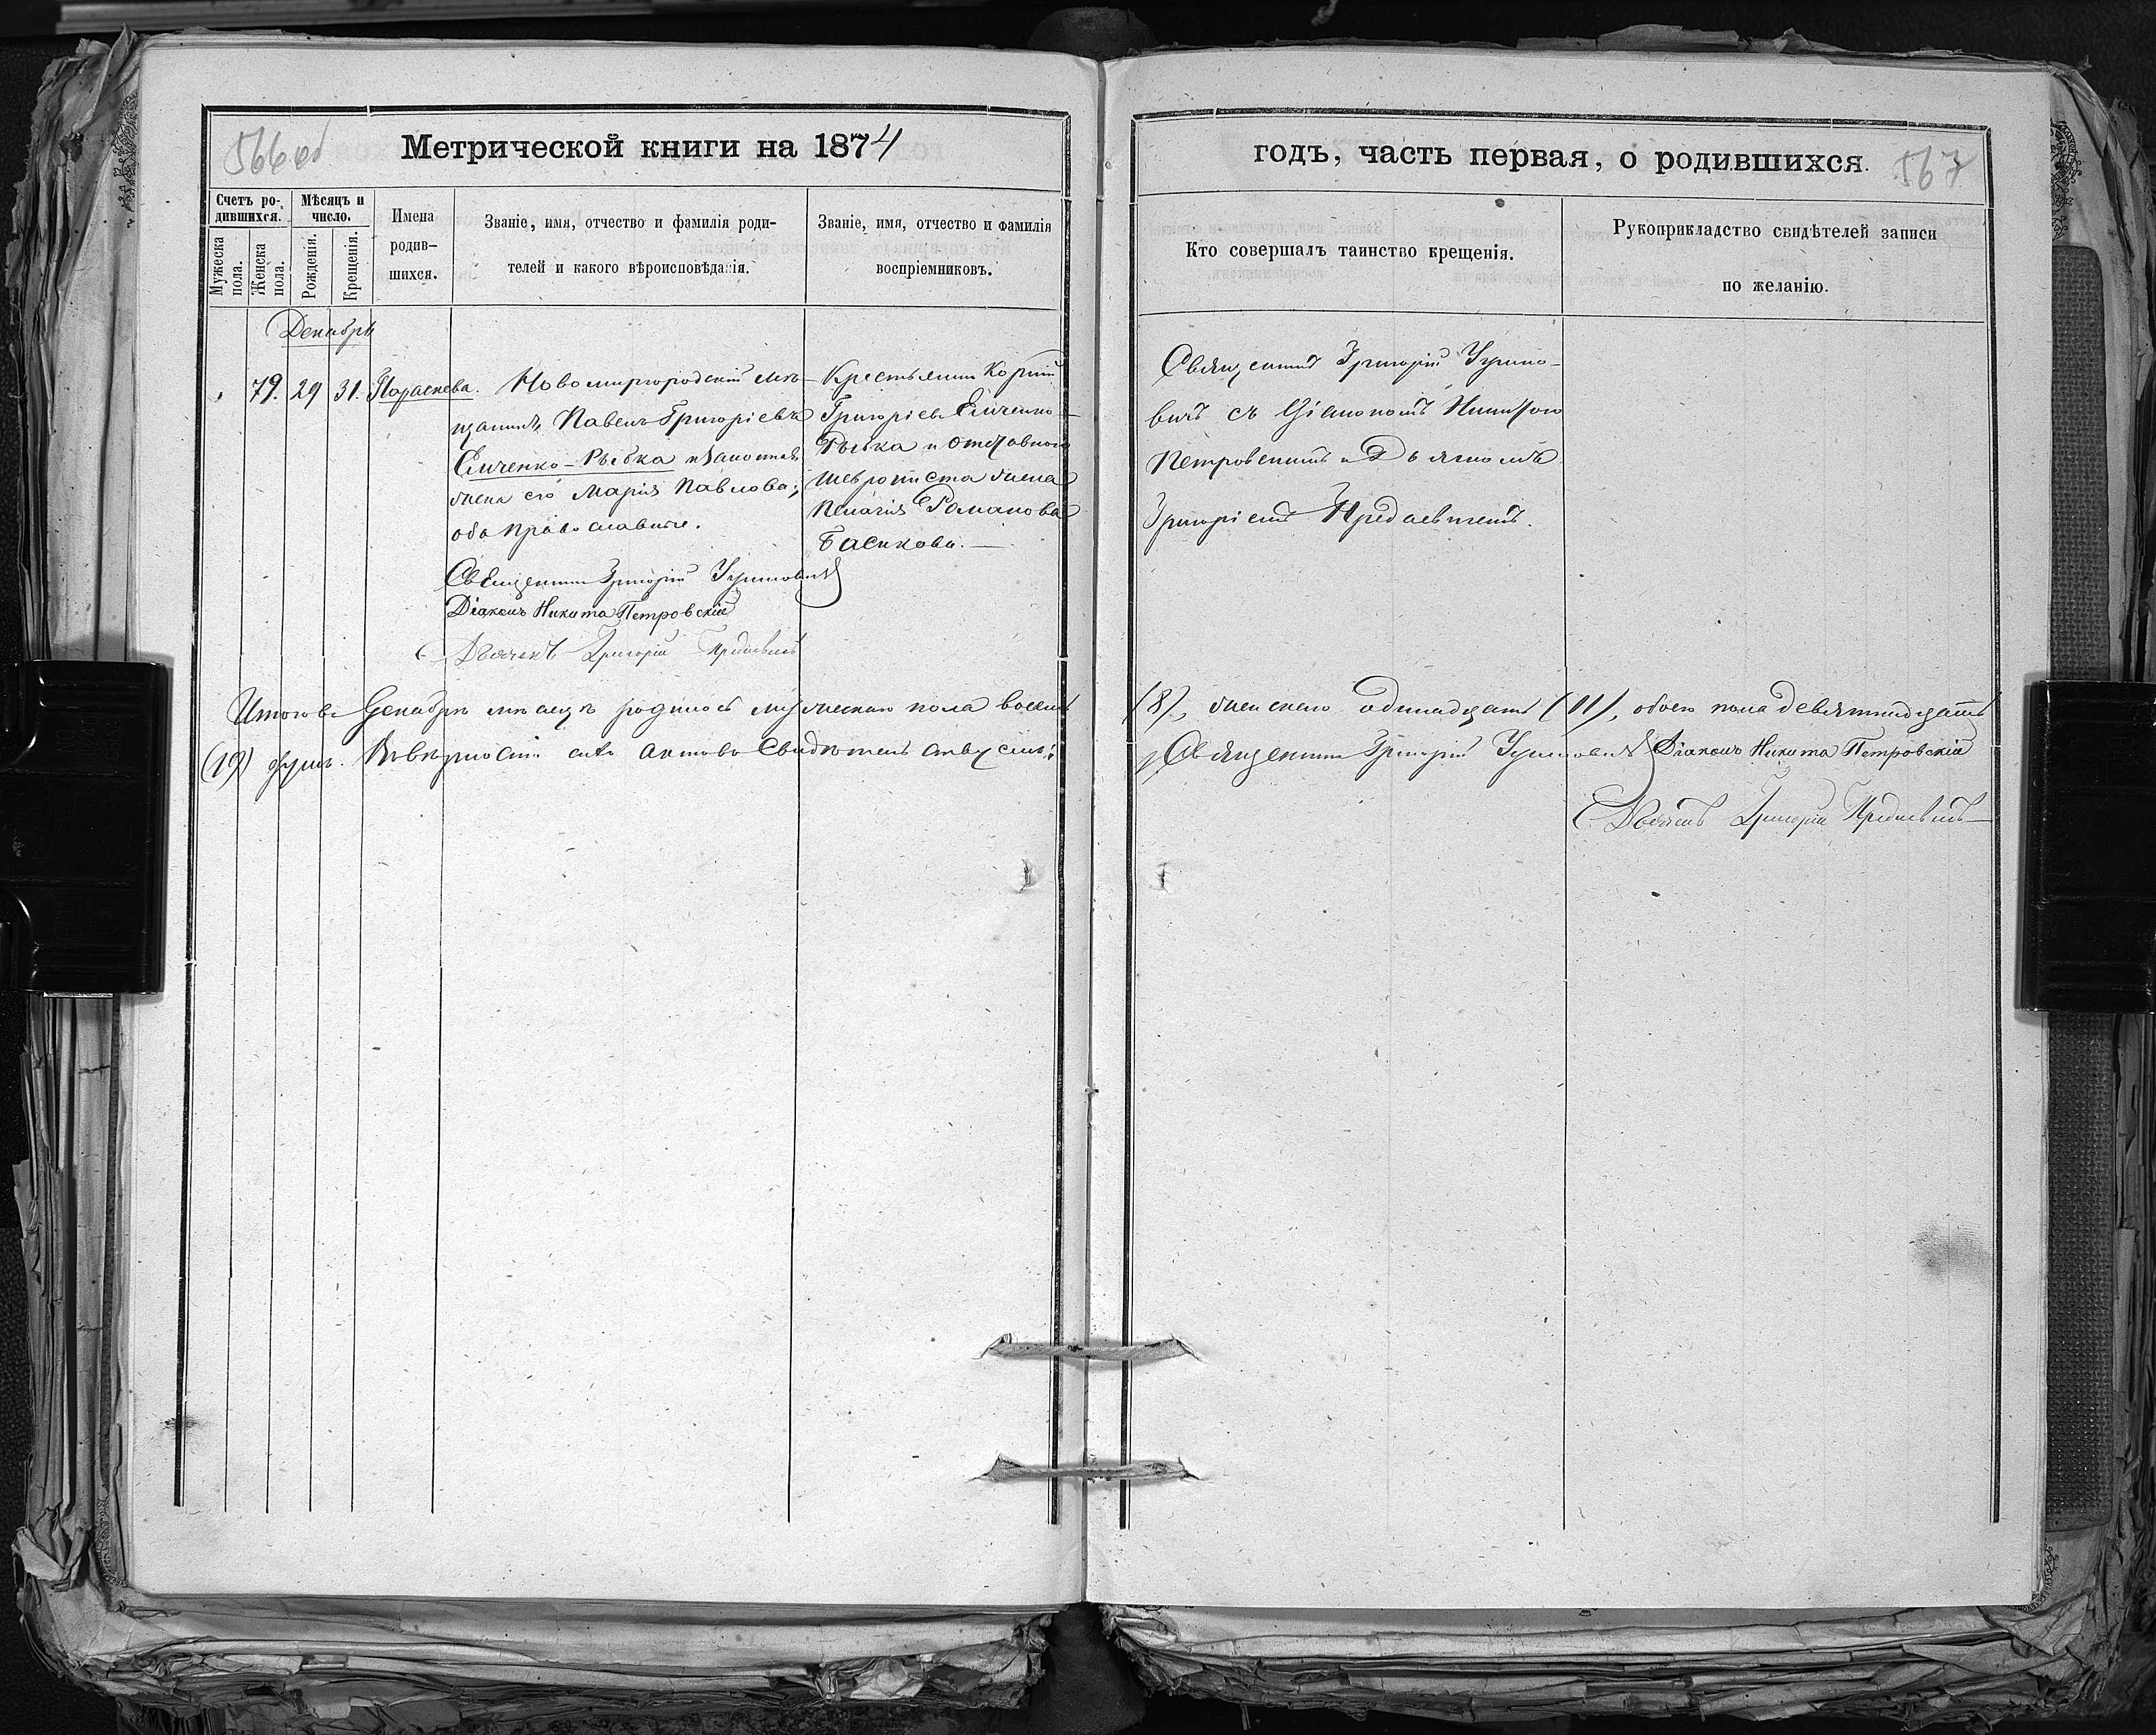 566 об
Метрической книги на 1874
Счетъ ро-
дившихся.
Мужеска
пола.
Женска
пола.
Мѣсяцъ и
число.
Рожденія.
Крещенія.
Имена
родив-
шихся.
Званіе, имя, отчество и фамилія роди-
телей и какого вѣроисповѣданія.
Званіе, имя, отчество и фамилія
воспріемниковъ.
Декабрь
79. 29 31. Параскева.
Новомиргородскій мѣ-
щанинъ Павелъ Григоріевъ
Ємченко-Рыбка и законная
жена его Марія Павлова;
оба православные.
Священникъ Григорій
Діаконъ Никита Петровскій
Дьячекъ Григорій
Крестьянинъ Корній
Григоріевъ Ємченко-
Рыбка и отставнаго
жена
Пелагія Романова
Басикова.
567
годъ, часть первая, о родившихся.
Кто совершалъ таинство крещенія.
Рукоприкладство свидѣтелей записи
по желанію.
Священникъ Григорій
вичъ съ Діакономъ Никитою
Петровскимъ и Дьячкомъ
Григоріемъ
Итого въ Декабрѣ мѣсяцѣ родилось мужескаго пола восемь (8), женскаго одинадцать (11), обоего пола девятнадцать
(19) душъ. Въ вѣрности сихъ актовъ свидѣтельствуемъ:
Священникъ Григорій Діаконъ Никита Петровскій
Дьячекъ Григорій